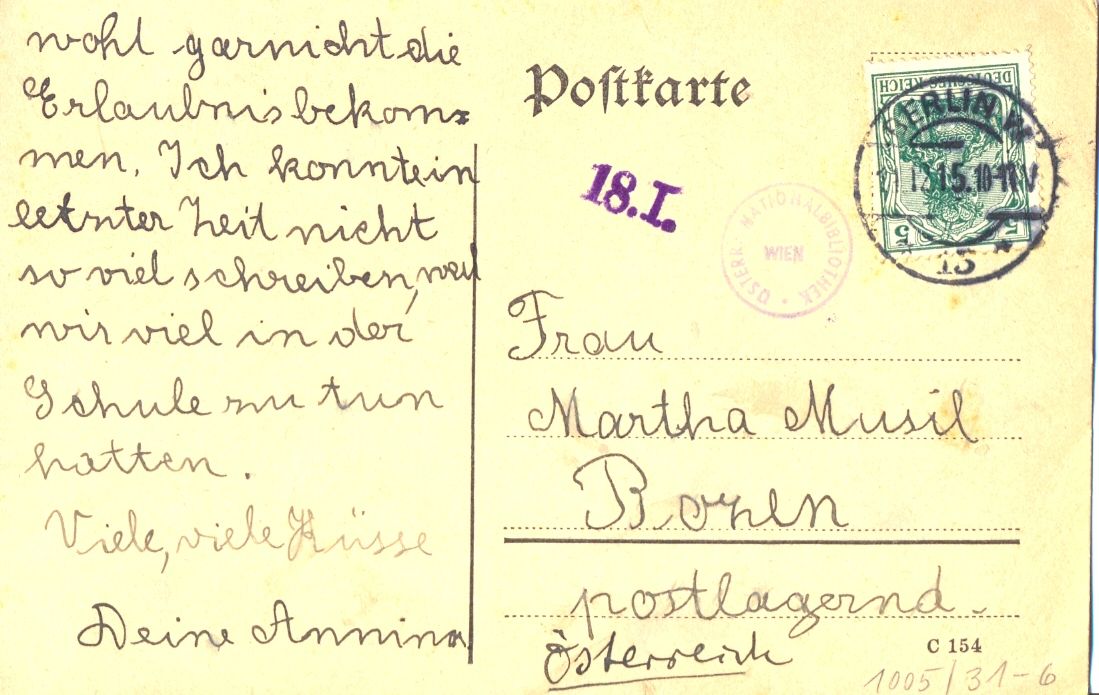 wohl garnicht die
Erlaubnis bekom=
men. Ich konnte in
letzter Zeit nicht
so viel schreiben, weil
wir viel in der
Schule zu tun
hatten.
Viele, viele Küsse
Deine Annina
Postkarte
DEUTSCHES REICH
5 5
BERLIN W
15. 10-11 V
15
18.I.
ÖSTERR. NATIONALBIBLIOTHEK
WIEN
Frau
Martha Musil
Bozen
postlagernd.
Österreich
C 154
1005/31-6